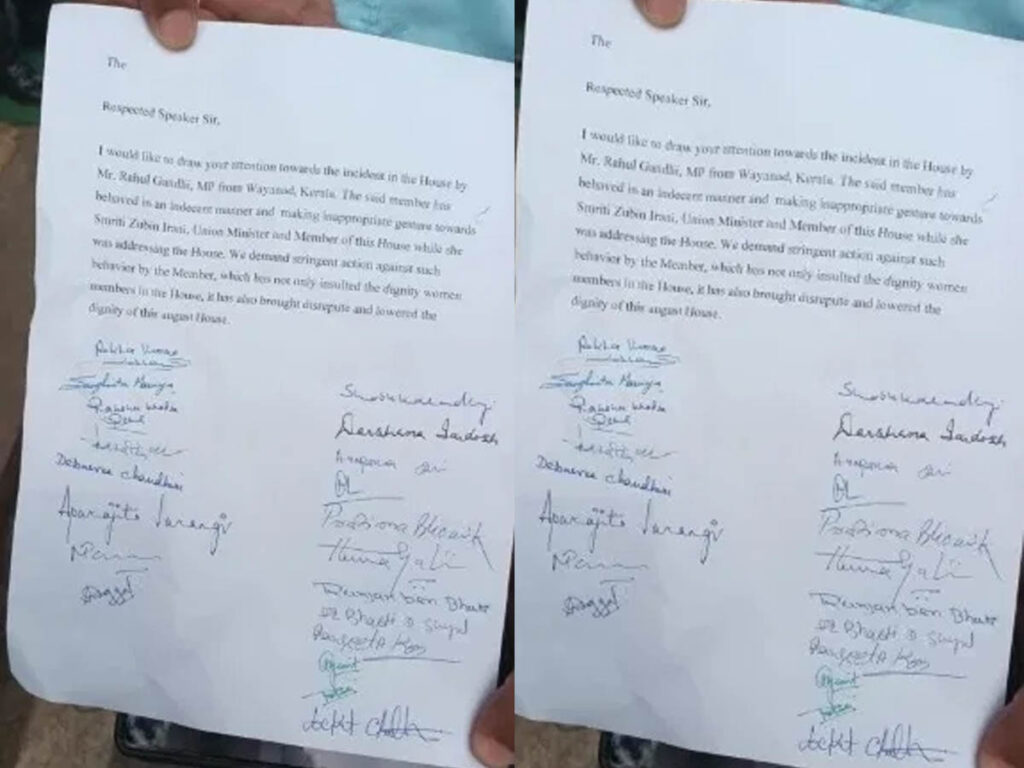 The
Respected Speaker Sir,
I would like to draw your attention towards the incident in the House by
Mr. Rahul Gandhi, MP from Wayanad, Kerala. The said member has
behaved in an indecent manner and making inappropriate gesture towards
Smriti Zubin Irani, Union Minister and Member of this House while she
was addressing the House. We demand stringent action against such
behavior by the Member, which has not only insulted the dignity women
members in the House, it has also brought disrepute and lowered the
dignity of this august House.
Sanghmitra Maurya
Debasree Chaudhuri
Aparajita Sarangi
Darshana Jardosh
Pratima Bhoumik
Ranjanben Bhatt
The
Respected Speaker Sir,
I would like to draw your attention towards the incident in the House by
Mr. Rahul Gandhi, MP from Wayanad, Kerala. The said member has
behaved in an indecent manner and making inappropriate gesture towards
Smriti Zubin Irani, Union Minister and Member of this House while she
was addressing the House. We demand stringent action against such
behavior by the Member, which has not only insulted the dignity women
members in the House, it has also brought disrepute and lowered the
dignity of this august House.
Sanghmitra Maurya
Debasree Chaudhuri
Aparajita Sarangi
Darshana Jardosh
Pratima Bhoumik
Ranjanben Bhatt